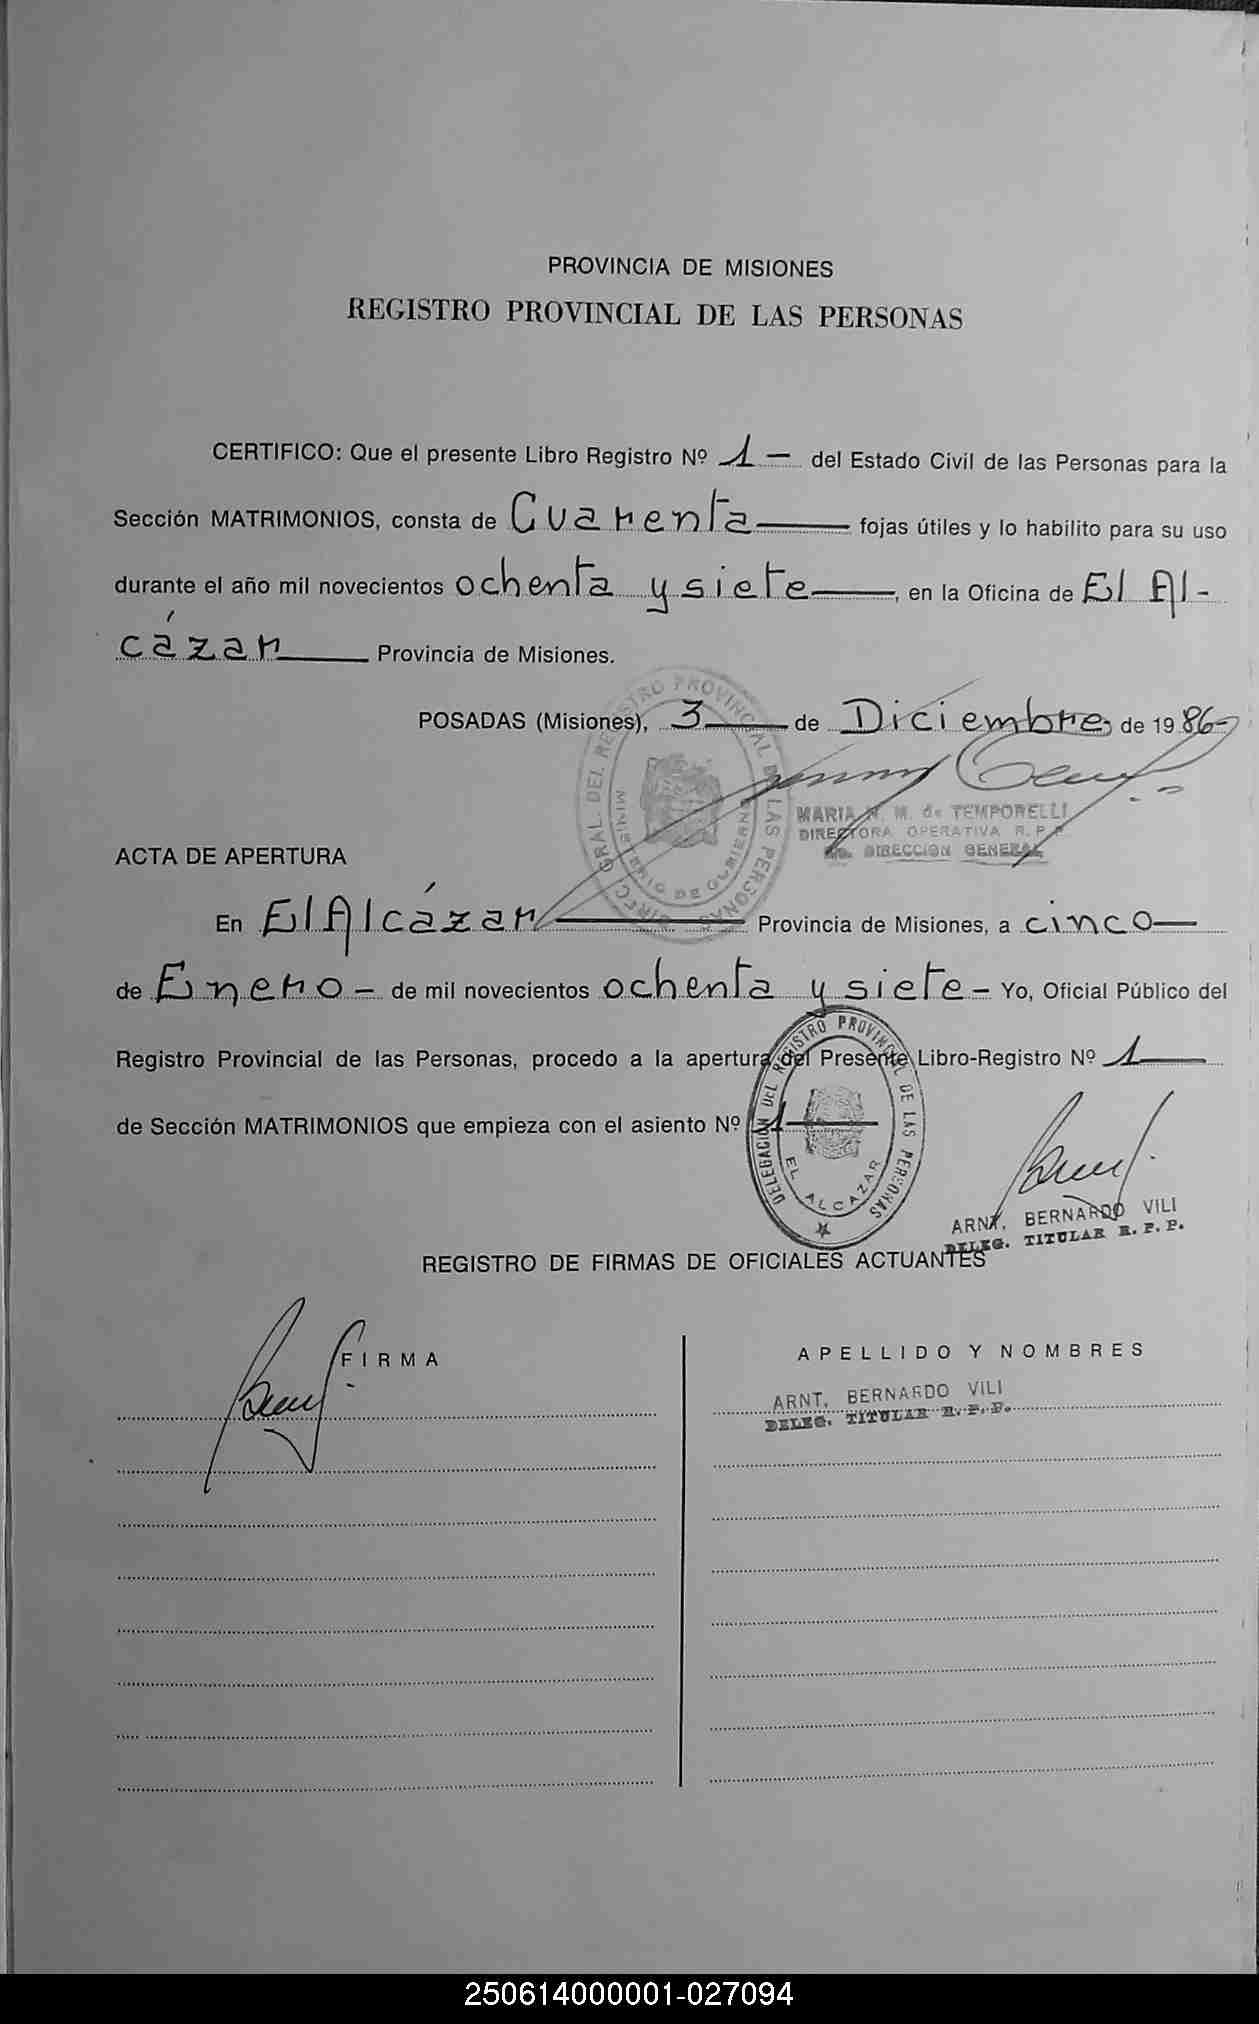 PROVINCIA DE MISIONES
REGISTRO PROVINCIAL DE LAS PERSONAS
CERTIFICO: Que el presente Libro Registro Nº 1 — del Estado Civil de las Personas para la
Sección MATRIMONIOS, consta de Cuarenta — fojas útiles y lo habilito para su uso
durante el año mil novecientos ochenta y siete —, en la Oficina de El Al-
cázar — Provincia de Misiones.
POSADAS (Misiones), 3 — de Diciembre de 1986-
DIREC. GRAL. DEL REGISTRO PROVINCIAL DE LAS PERSONAS
MINISTERIO DE GOBIERNO
MARIA N. M. de TEMPORELLI
DIRECTORA OPERATIVA R. P. P.
DIRECCION GENERAL
ACTA DE APERTURA
En El Alcázar — Provincia de Misiones, a cinco —
de Enero — de mil novecientos ochenta y siete — Yo, Oficial Público del
Registro Provincial de las Personas, procedo a la apertura del Presente Libro-Registro Nº 1 —
de Sección MATRIMONIOS que empieza con el asiento Nº 1 —
DELEGACION DEL REGISTRO PROVINCIAL DE LAS PERSONAS
EL ALCAZAR
ARNT, BERNARDO VILI
DELEG. TITULAR R. P. P.
REGISTRO DE FIRMAS DE OFICIALES ACTUANTES
FIRMA
APELLIDO Y NOMBRES
ARNT, BERNARDO VILI
DELEG. TITULAR R. P. P.
250614000001-027094